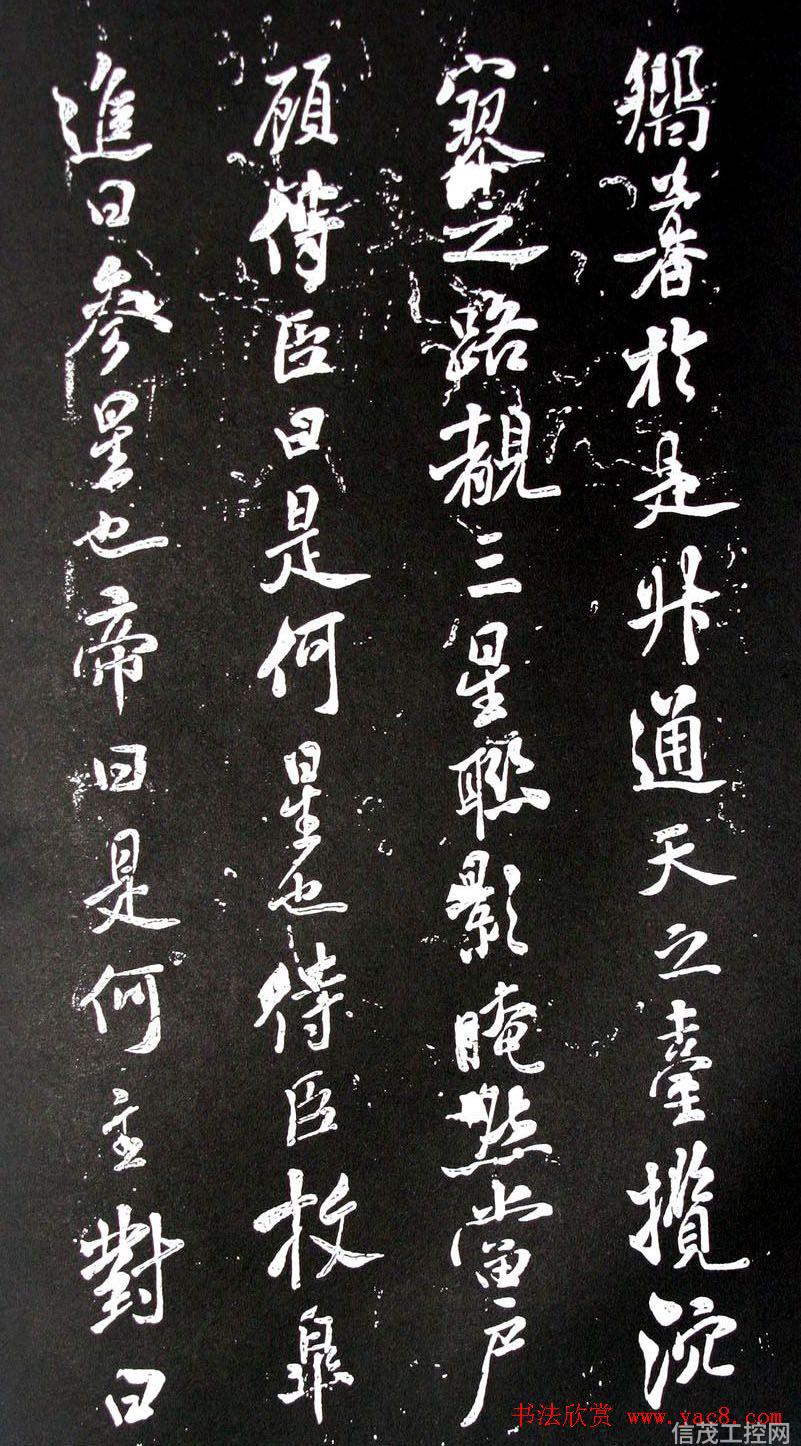 嚮暮於是升通天之臺攬沉
寥之路覩三星聯影晻然當户
顧侍臣曰是何星也侍臣枚皋
進曰參星也帝曰是何主對曰
书法欣赏 www.yac8.com
信茂工控网